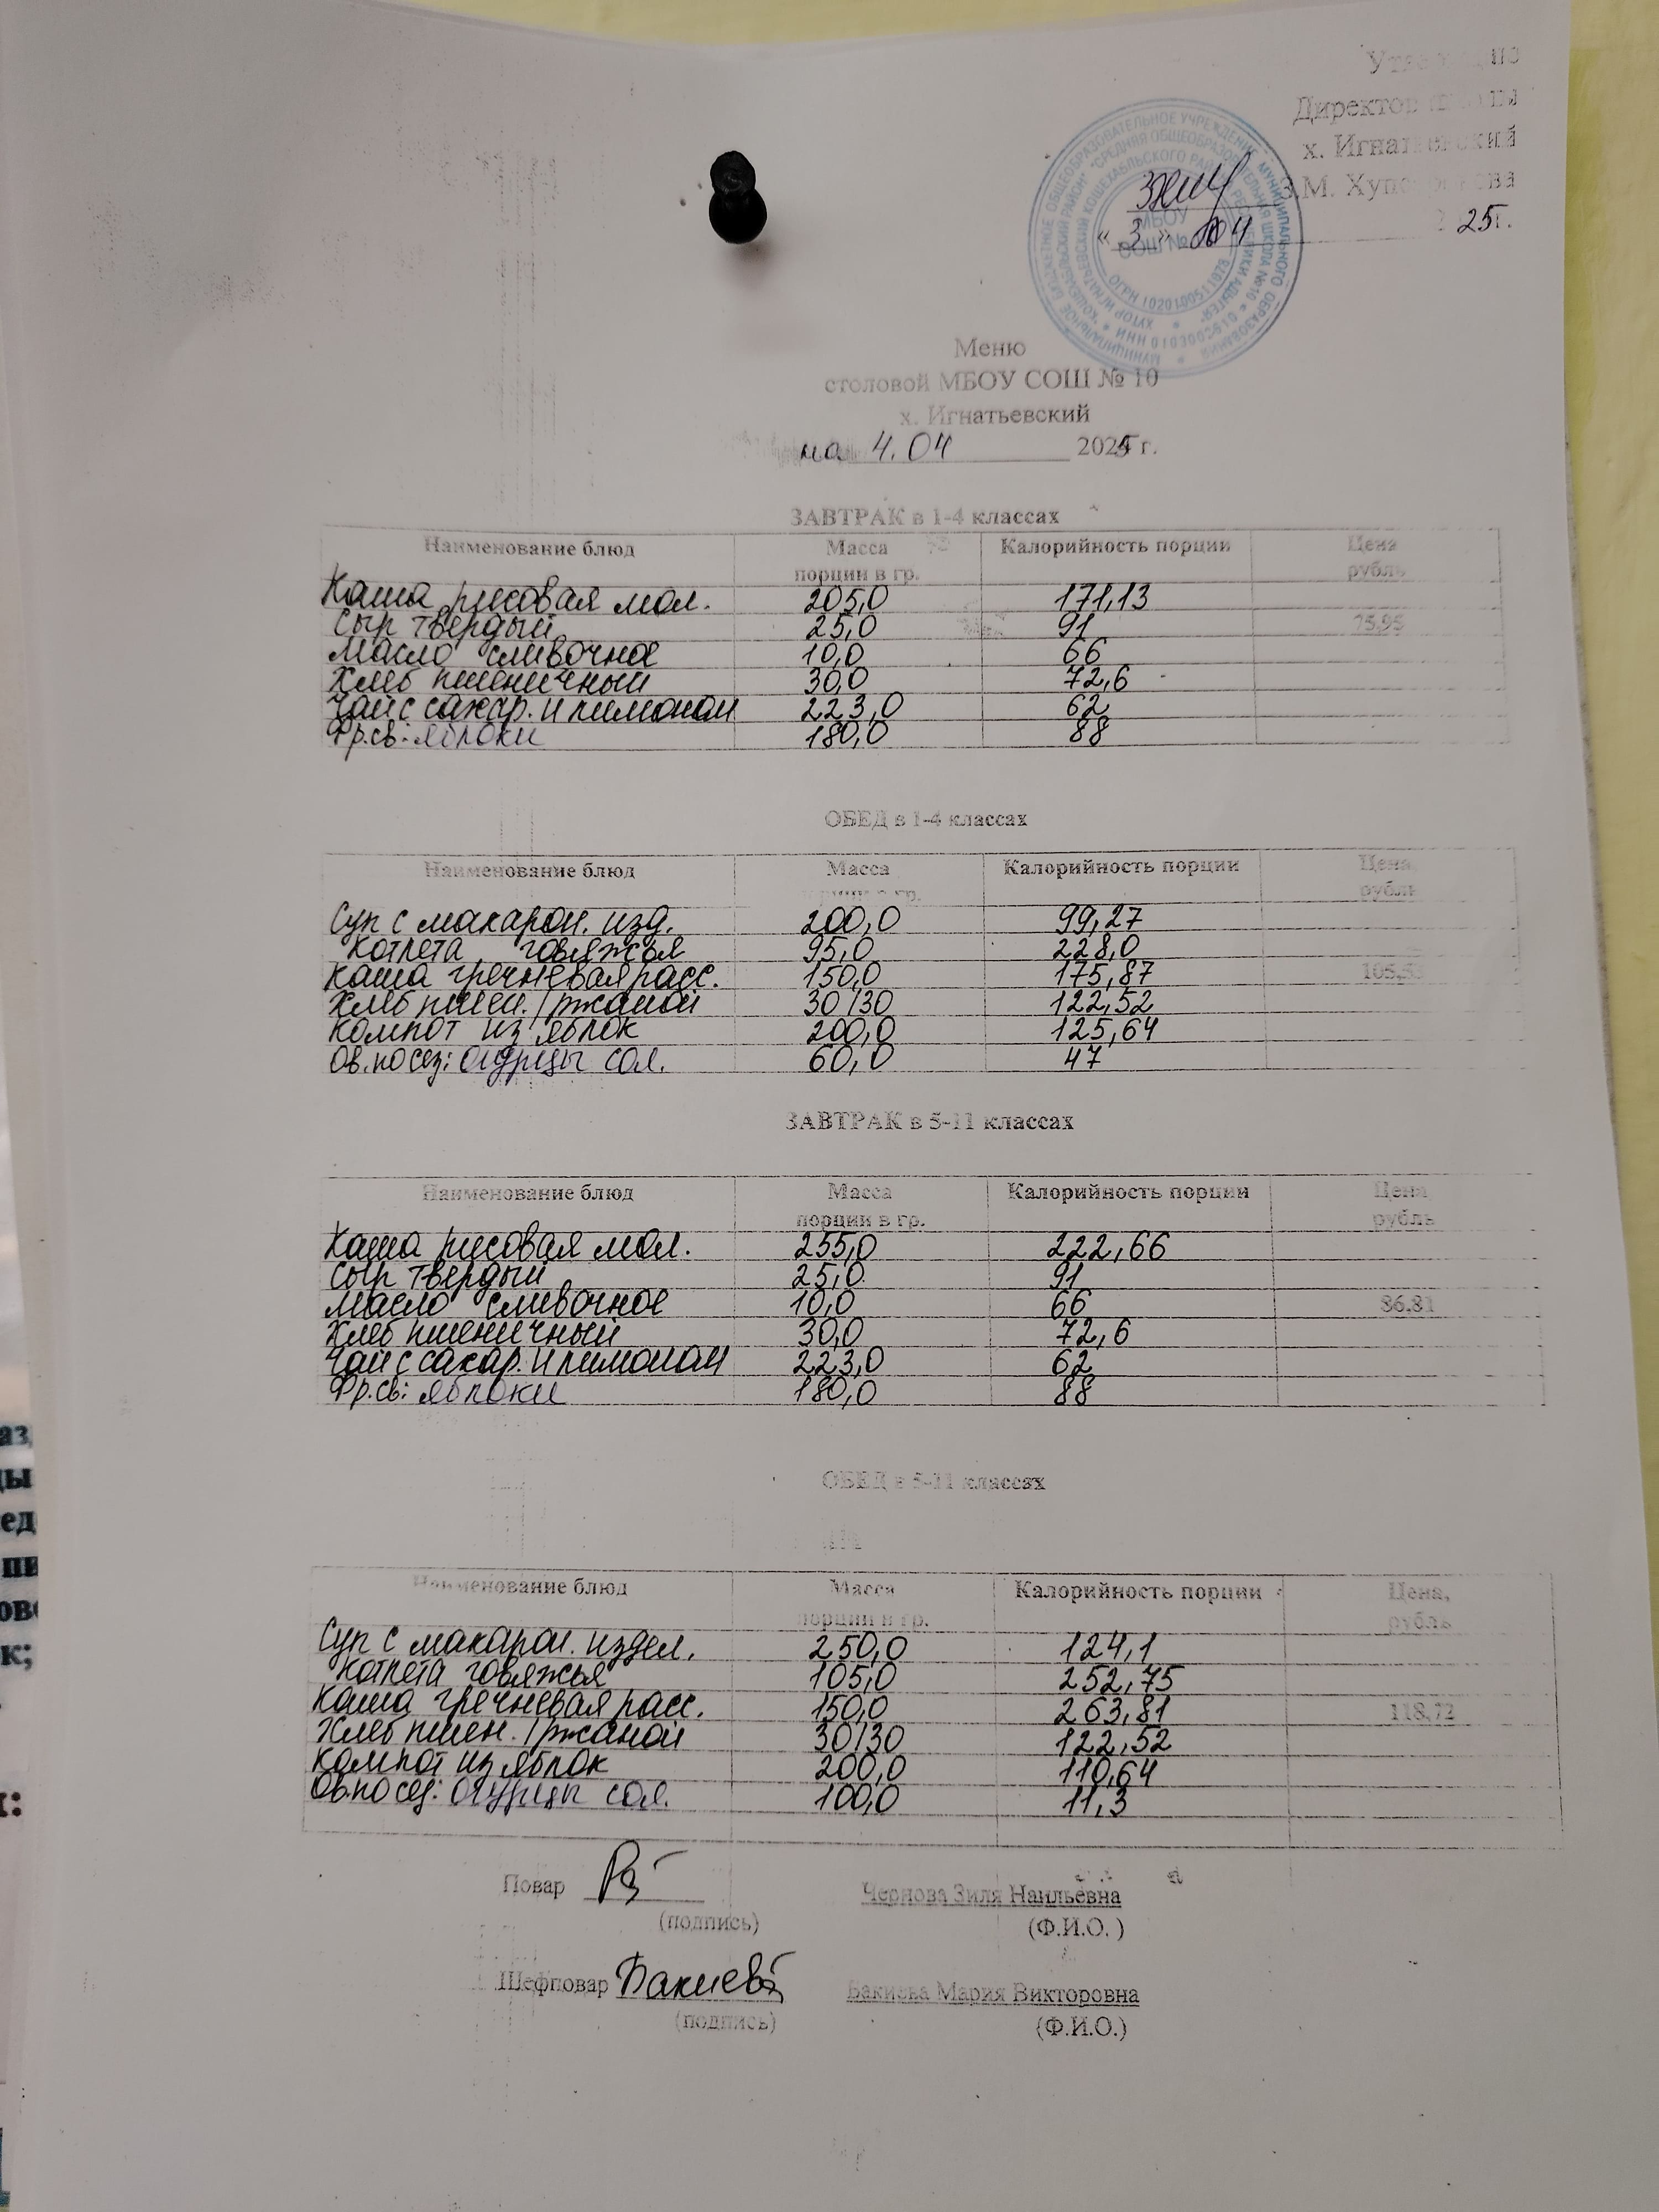 Директор
х. Игнатьевский
З.М.
« 3 » 04 25г.
МБОУ
СОШ №
Меню
столовой МБОУ СОШ № 10
х. Игнатьевский
на 4.04 2025 г.
ЗАВТРАК в 1-4 классах
Наименование блюд Масса порции в гр. Калорийность порции Цена рубль
Каша рисовая мол. 205,0 171,13
Сыр твердый 25,0 91 75,95
Масло сливочное 10,0 66
Хлеб пшеничный 30,0 72,6
Чай с сахар. и лимоном 223,0 62
Фр.св: яблоки 180,0 88
ОБЕД в 1-4 классах
Наименование блюд Масса порции в гр. Калорийность порции Цена, рубль
Суп с макарон. изд. 200,0 99,27
Котлета говяжья 95,0 228,0
Каша гречневая расс. 150,0 175,87
Хлеб пшен./ржаной 30/30 122,52
Компот из яблок 200,0 125,64
Ов.по сез: огурцы сол. 60,0 47
ЗАВТРАК в 5-11 классах
Наименование блюд Масса порции в гр. Калорийность порции Цена рубль
Каша рисовая мол. 255,0 222,66
Сыр твердый 25,0 91
Масло сливочное 10,0 66 86,81
Хлеб пшеничный 30,0 72,6
Чай с сахар. и лимоном 223,0 62
Фр.св: яблоки 180,0 88
ОБЕД в 5-11 классах
Наименование блюд Масса порции в гр. Калорийность порции Цена, рубль
Суп с макарон. издел. 250,0 124,1
Котлета говяжья 105,0 252,75
Каша гречневая расс. 150,0 263,81 118,72
Хлеб пшен./ржаной 30/30 122,52
Компот из яблок 200,0 110,64
Ов.по сез: огурцы сол. 100,0 11,3
Повар Чернова Зиля Наильевна
(подпись) (Ф.И.О. )
Шефповар Бакиева Бакиева Мария Викторовна
(подпись) (Ф.И.О.)